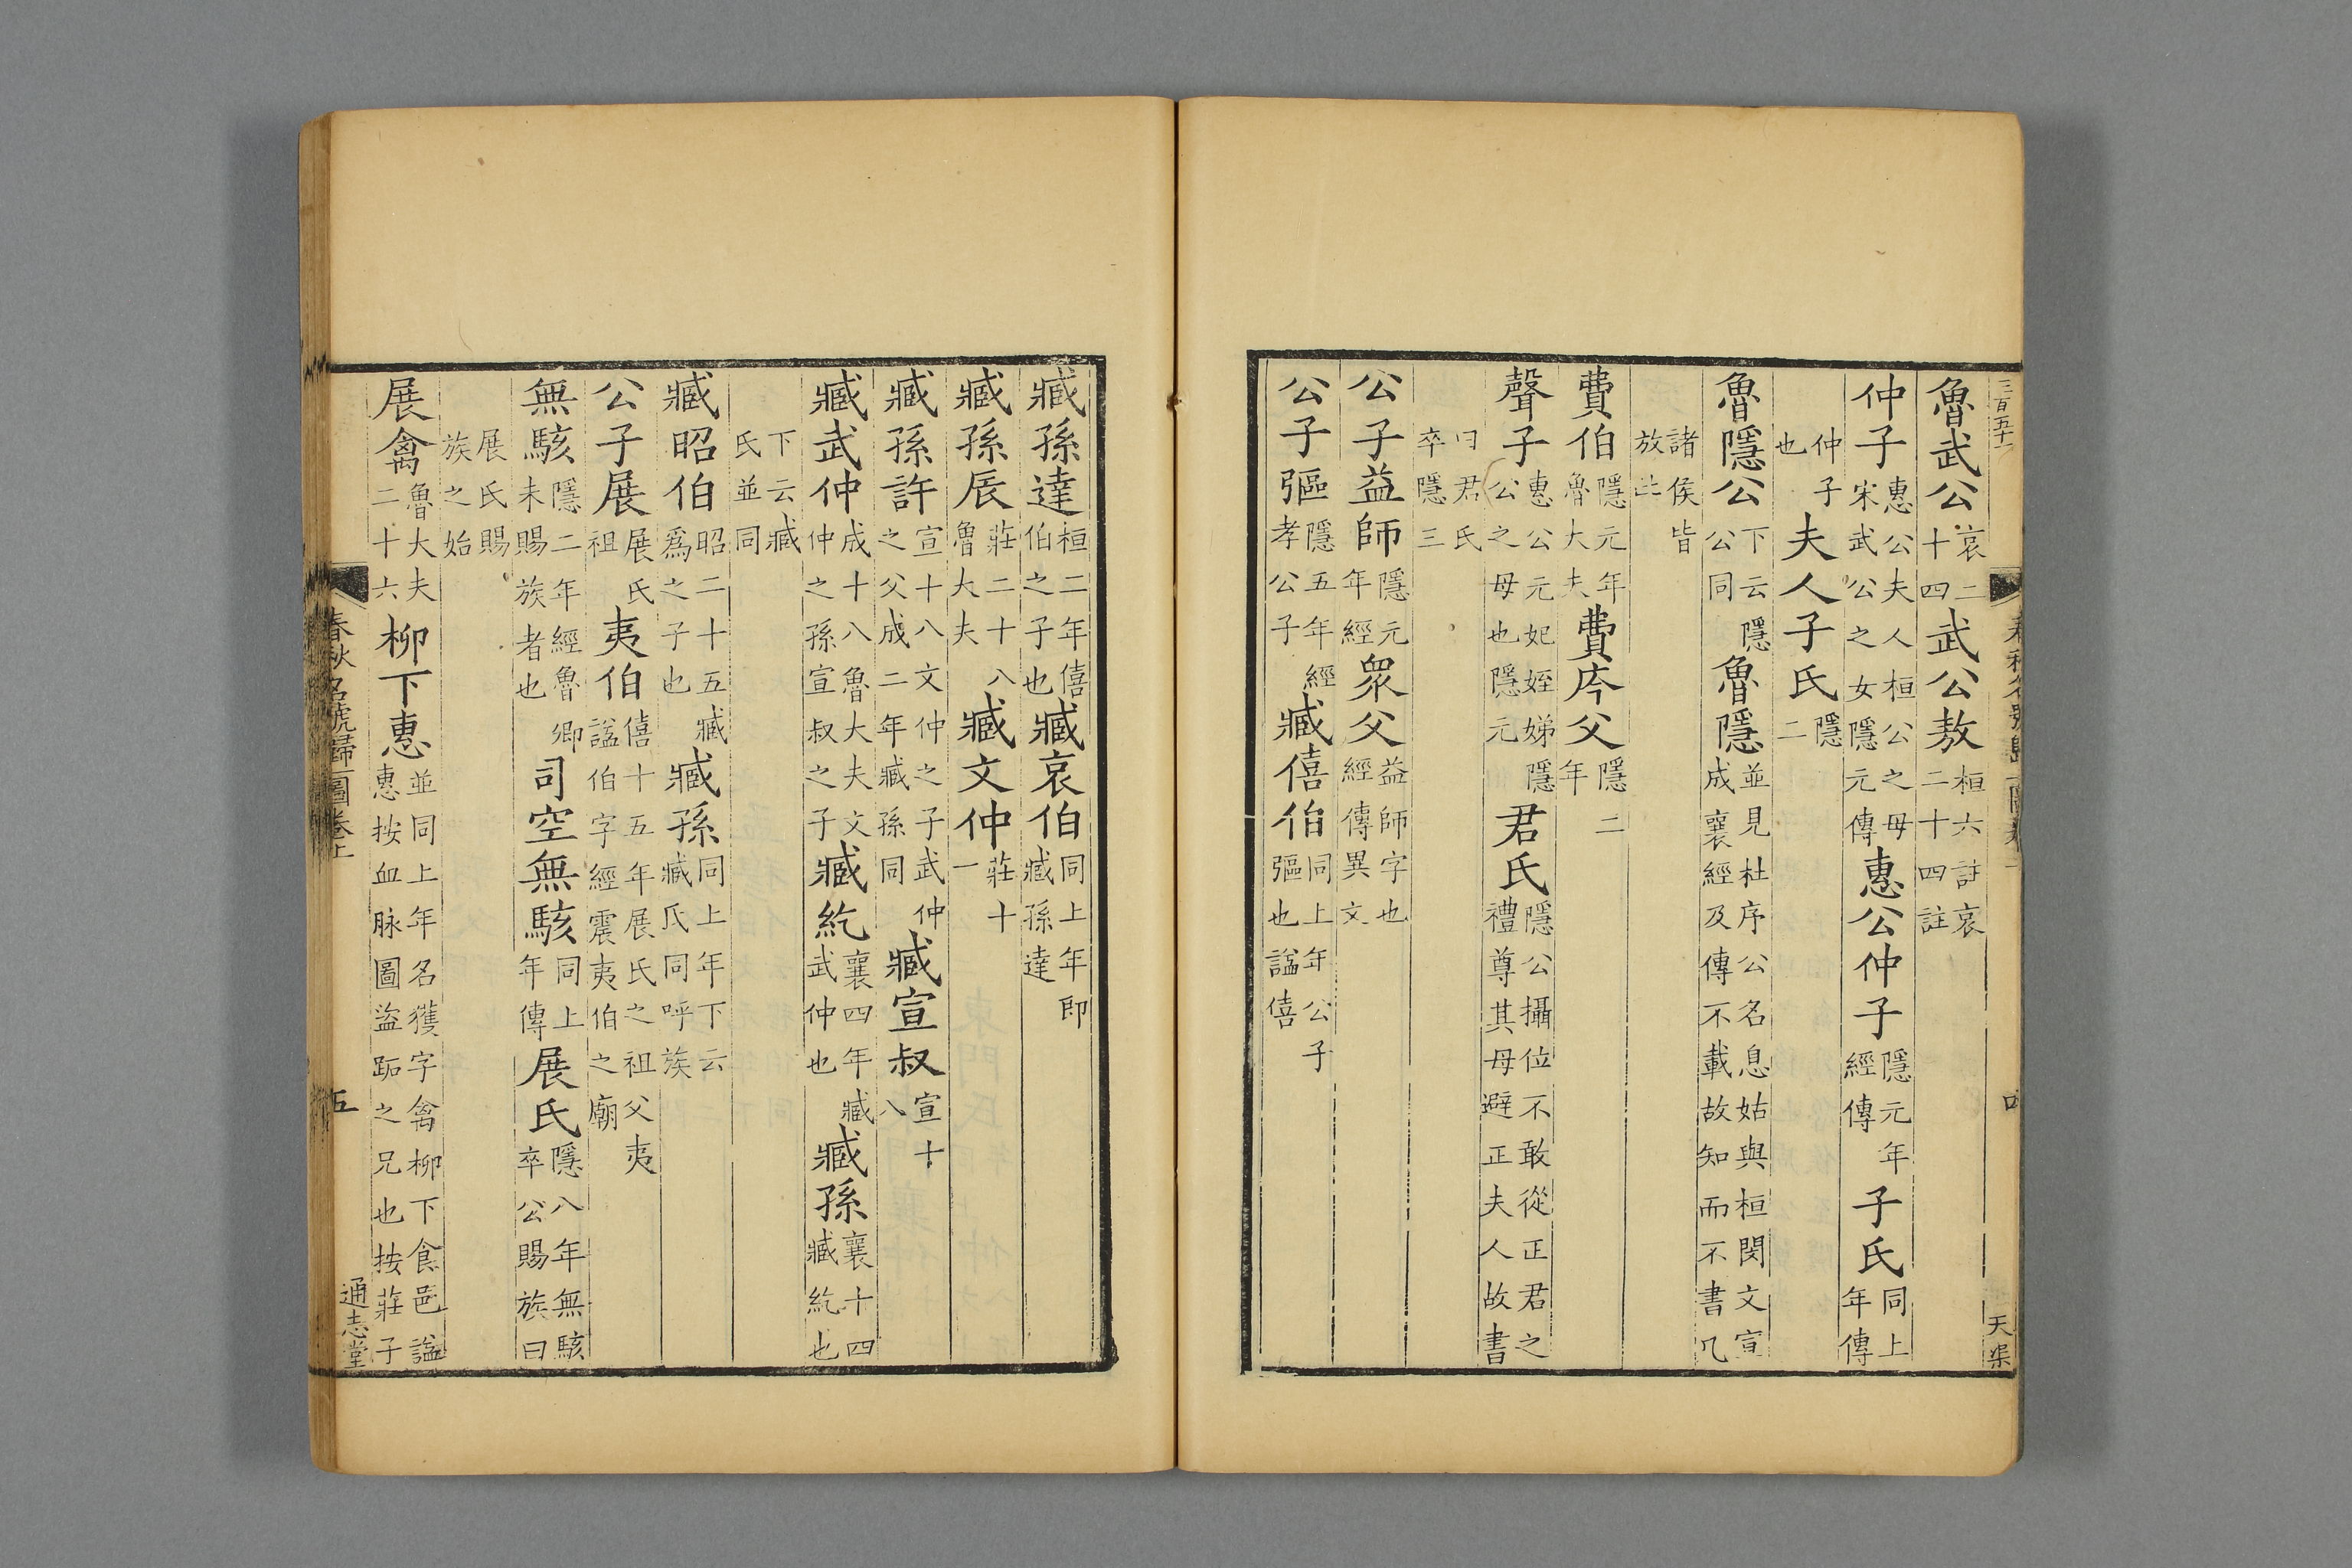 三百五十
魯武公哀二十四武公敖桓六註哀二十四註
仲子惠公夫人桓公之母宋武公之女隱元傳惠公仲子隱元年經傳子氏同上年傳
仲子也夫人子氏隱二
魯隱公下云隱公同魯隱並見杜序公名息姑與桓閔文宣成襄經及傳不載故知而不書凡
諸侯皆放此
費伯隱元年魯大夫費庈父隱二年
聲子惠公元妃姪娣隱公之母也隱元君氏隱公攝位不敢從正君之禮尊其母避正夫人故書
曰君氏卒隱三
公子益師隱元年經眾父益師字也經傳異文
公子彄隱五年經孝公子臧僖伯同上年公子彄也諡僖
天渠
臧孫達桓二年僖伯之子也臧哀伯同上年即臧孫達
臧孫辰莊二十八魯大夫臧文仲莊十一
臧孫許宣十八文仲之子武仲之父成二年臧孫同臧宣叔宣十八
臧武仲成十八魯大夫文仲之孫宣叔之子臧紇襄四年臧武仲也臧孫襄十四臧紇也
下云臧氏並同
臧昭伯昭二十五臧爲之子也臧孫同上年下云臧氏同呼族
公子展展氏祖夷伯僖十五年展氏之祖父夷諡伯字經震夷伯之廟
無駭隱二年經魯卿未賜族者也司空無駭同上年傳展氏隱八年無駭卒公賜族曰
展氏賜族之始
展禽魯大夫二十六柳下惠並同上年名獲字禽柳下食邑諡惠按血脉圖盜跖之兄也按莊子
春秋名號歸一圖卷上
五
通志堂